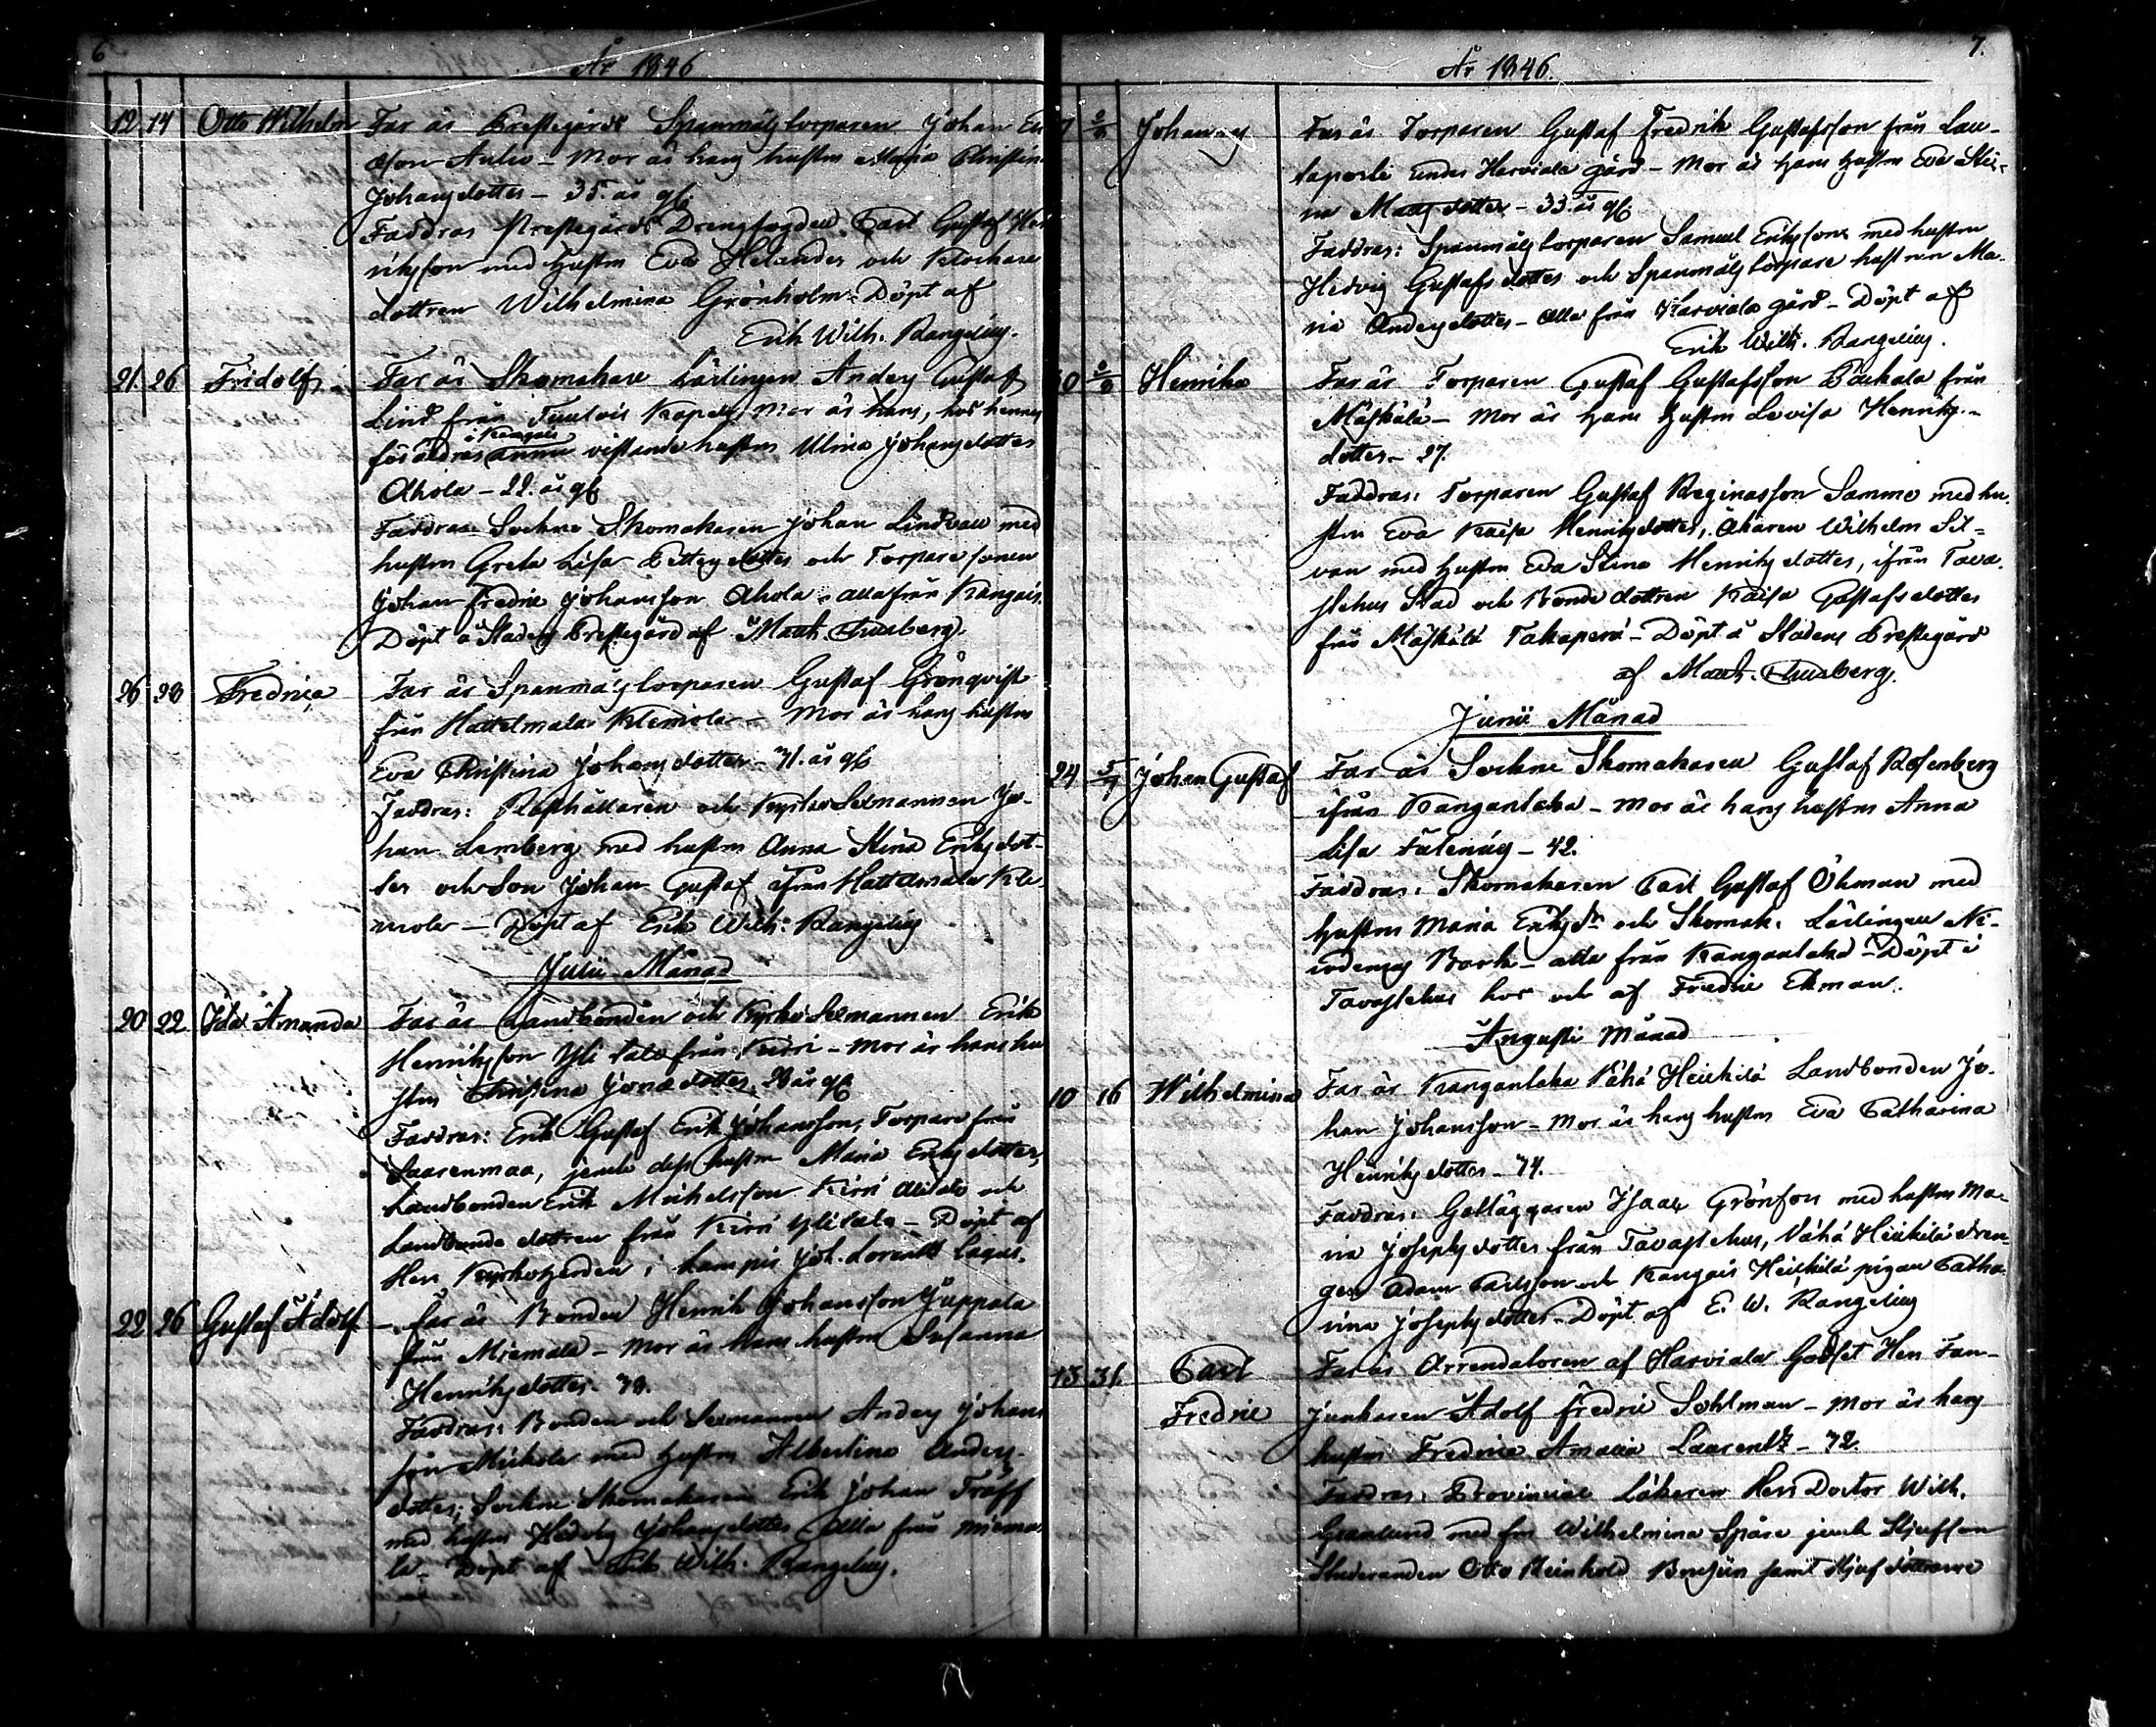 6
År 1846
12 14 Otto Wilhelm Far är Prestegårds Spanmålstorparen Johan
Anlio - Mor är hans hustru Maria Christina
Johansdotter - 35. år gl.
Faddrar Prestegårds Drengfogden Carl Gustaf Hen
riksson med hustru Eva Helander och Klockare
dottren Wilhelmina Grönholm - Döpt af
Erik Wilh. Rangelius.
21. 26 Fridolf Far är Skomakare Lärlingen Anders Gustaf
Lind från Tuulois Kapell, Mor är hans, hos hennes
föräldrar ännu vistande hustru Ulrica Johansdotter
Ahola - 22. år gl.
Faddrar Sockne Skomakaren Johan Lindvall med
hustru Greta Lisa Pettersdotter och Torpare sonen
Johan Fredric Johansson Ahola - alla från Kangais.
Döpt å Stadens Prestegård af Math.
26 28 Fredrica Far är Spanmålstorparen Gustaf Grönqvist
från Hattelmala Klemola - Mor är hans hustru
Eva Christina Johansdotter - 31. år gl.
Faddrar: Rusthållaren och Kyrko Sexmannen Jo-
han Lemberg med hustru Anna Stina Eriksdot-
ter och Son Johan Gustaf ifrån Hattelmala Kle-
mola - Döpt af Erik Wilh: Rangelius
Julii Månad
20 22 Ida Amanda Far är Landbonden och Kyrko Sexmannen Erik
Henriksson Yli talo från Kirri - Mor är hans hu
stru Christina Jonædotter, 28 år gl.
Faddrar: Erik Gustaf Erik Johansson, Torpare från
Saarenmaa, jemte dess hustru Maria Eriksdotter,
Landbonden Erik Michelsson Kirri Alitalo och
Landbonde dottren från Kirri Ylitalo - Döpt af
Herr Kyrkoherden i Lampis Joh. Lorentz Lagus.
22 26 Gustaf Adolf - Far är Bonden Henrik Johansson Juppala
från Miemala - Mor är hans hustru Susanna
Henriksdotter.
Faddrar: Bonden och Sexmannen Anders Johans
son Mickola med hustru Albertina Anders-
dotter; Sockne Skomakaren Erik Johan Träff
med hustru Hedvig Johansdotter - Alla från Miema
la - Döpt af Erik Wilh. Rangelius.
7.
År 1846.
Johannes Far är Torparen Gustaf Fredrik Gustafsson från Lau-
taporti under Harviala gård - Mor är hans hustru Eva Sti-
na Mattsdotter - 33. år gl.
Faddrar: Spanmålstorparen Samuel Eriksson med hustru
Hedvig Gustafsdotter och Spanmålstorpare hustrun Ma-
ria Andersdotter - Alla från Harviala gård - Döpt af
Erik Wilh. Rangelius.
Henrika Far är Torparen Gustaf Gustafsson från
Mäskälä - Mor är hans hustru Lovisa Henriks-
dotter - 27.
Faddrar: Torparen Gustaf Reginasson Sammo med hu-
stru Eva Kaisa Henriksdotter, Åkaren Wilhelm Sil-
van med hustru Eva Stina Henriksdotter, ifrån Tava-
stehus Stad och Bonde dottren Kaisa Gustafsdotter
från Mäskälä Takaperä - Döpt å Stadens Prestegård
af Math.
Junii Månad
24 5/7 Johan Gustaf Far är Sockne Skomakaren Gustaf Rosenberg
ifrån Kanganlaka - Mor är hans hustru Anna
Lisa Falenius - 42.
Faddrar: Skomakaren Carl Gustaf Öhman med
hustru Maria Eriksdr och Skomak. Lärlingen Ni-
codemus Bork - alla från Kanganlaka - Döpt i
Tavastehus hos och af Fredric Ekman.
Augusti Månad
10 16 Wilhelmina Far är Kanganlaka Vähä Heikkilä Landbonden Jo-
han Johansson - Mor är hans hustru Eva Catharina
Henriksdotter
Faddrar: Isaac Grönfors med hustru Ma-
ria Josephsdotter från Tavastehus, Vähä Heikkilä dren-
gen Adam Carlsson och Kangais Heikkilä pigan Catha-
rina Josephsdotter - Döpt af E. W. Rangelius
13 31. Carl Fredric Far är Arrendatoren af Harviala Godset Herr Fan-
junkaren Adolf Fredric Sohlman - Mor är hans
hustru Fredrica Amalia Laurentz
Faddrar: Provincial Läkaren Herr Doctor Wilh.
Granlund med fru Wilhelmina Spåre jemte Stjufson
Studeranden Otto Reinhold samt Stjufdöttrarne